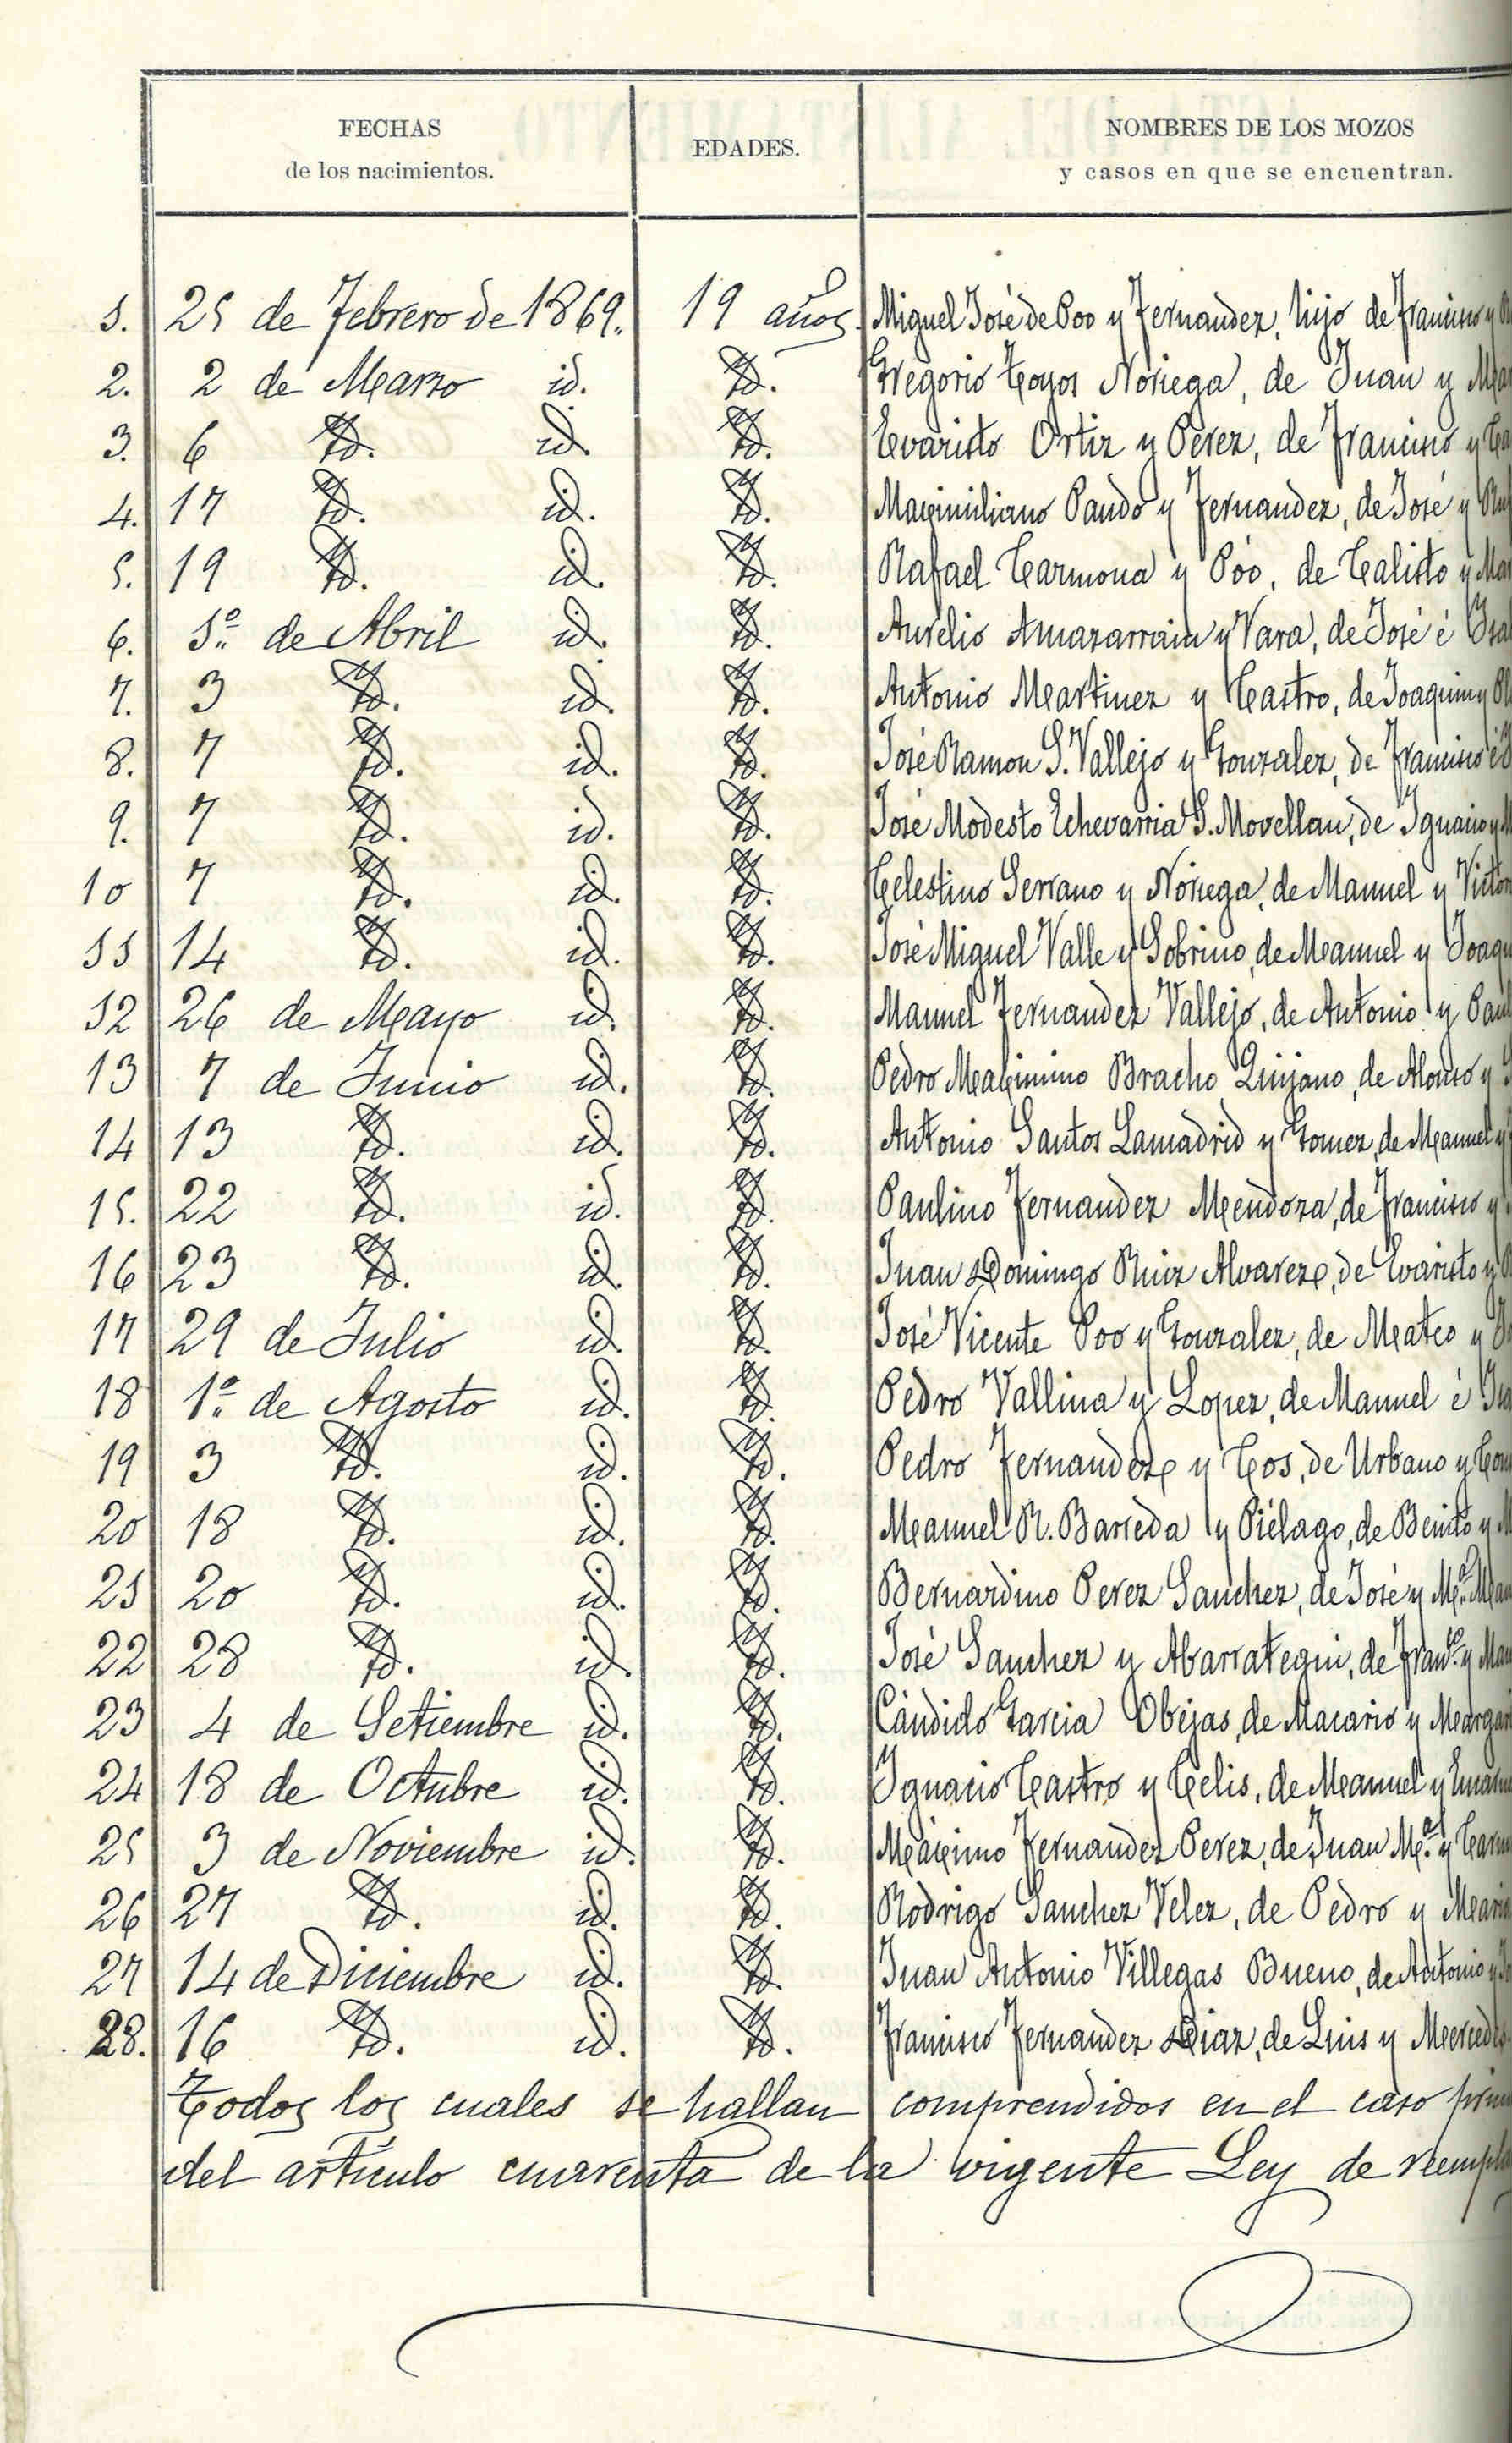 FECHAS
de los nacimientos.
EDADES.
NOMBRES DE LOS MOZOS
y casos en que se encuentran.
1. 25 de Febrero de 1869. 19 años. Miguel José de Poo y Fernandez, hijo de Francisco y
2. 2 de Marzo id. Yd. Gregorio Hoyos Noriega, de Juan y
3. 6 Yd. id. Yd. Evaristo Ortiz y Perez, de Francisco y
4. 17 Yd. id. Yd. Maximiliano Pando y Fernandez, de José y
5. 19 Yd. id. Yd. Rafael Carmona y Póo, de Calisto y
6. 1º de Abril id. Yd. Aurelio Amazarrain y Vara, de José é
7. 3 Yd. id. Yd. Antonio Martinez y Castro, de Joaquin y
8. 7 Yd. id. Yd. José Ramon S. Vallejo y Gonzalez, de Francisco é
9. 7 Yd. id. Yd. José Modesto Echevarria S. Movellan, de Ignacio y
10 7 Yd. id. Yd. Celestino Serrano y Noriega, de Manuel y
11 14 Yd. id. Yd. José Miguel Valle y Sobrino, de Manuel y
12 26 de Mayo id. Yd. Manuel Fernandez Vallejo, de Antonio y
13 7 de Junio id. Yd. Pedro Maximino Bracho Quijano, de Alonso y
14 13 Yd. id. Yd. Antonio Santos Lamadrid y Gomez, de Manuel y
15. 22 Yd. id. Yd. Paulino Fernandez Mendoza, de Francisco y
16 23 Yd. id. Yd. Juan Domingo Ruiz Alvarez, de Evaristo y
17 29 de Julio id. Yd. José Vicente Poo y Gonzalez, de Mateo y
18 1º de Agosto id. Yd. Pedro Vallina y Lopez, de Manuel é
19 3 Yd. id. Yd. Pedro Fernandez y Cos, de Urbano y
20 18 Yd. id. Yd. Manuel R. Barreda y Piélago, de Benito y
21 20 Yd. id. Yd. Bernardino Perez Sanchez, de José y Mª
22 28 Yd. id. Yd. José Sanchez y Abarrategui, de Franco. y
23 4 de Setiembre id. Yd. Cándido Garcia Obejas, de Macario y
24 18 de Octubre id. Yd. Ignacio Castro y Celis, de Manuel y
25 3 de Noviembre id. Yd. Máximo Fernandez Perez, de Juan Mª y
26 27 Yd. id. Yd. Rodrigo Sanchez Velez, de Pedro y
27 14 de Diciembre id. Yd. Juan Antonio Villegas Bueno, de Antonio y
28. 16 Yd. id. Yd. Francisco Fernandez Diaz, de Luis y Mercedes
Todos los cuales se hallan comprendidos en el caso
del artículo cuarenta de la vigente Ley de